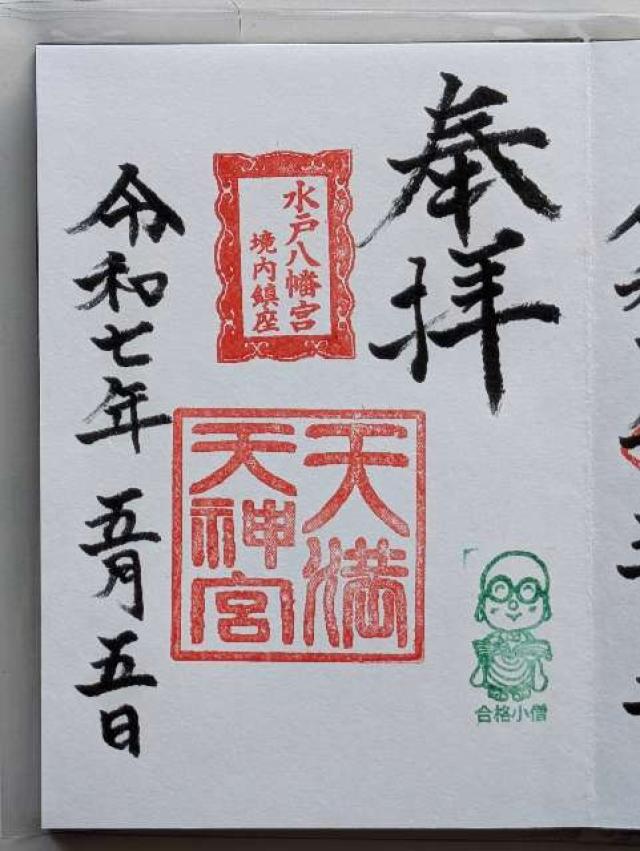 奉拝
水戸八幡宮
境内鎮座
天満
天神宮
合格小僧
令和七年 五月五日